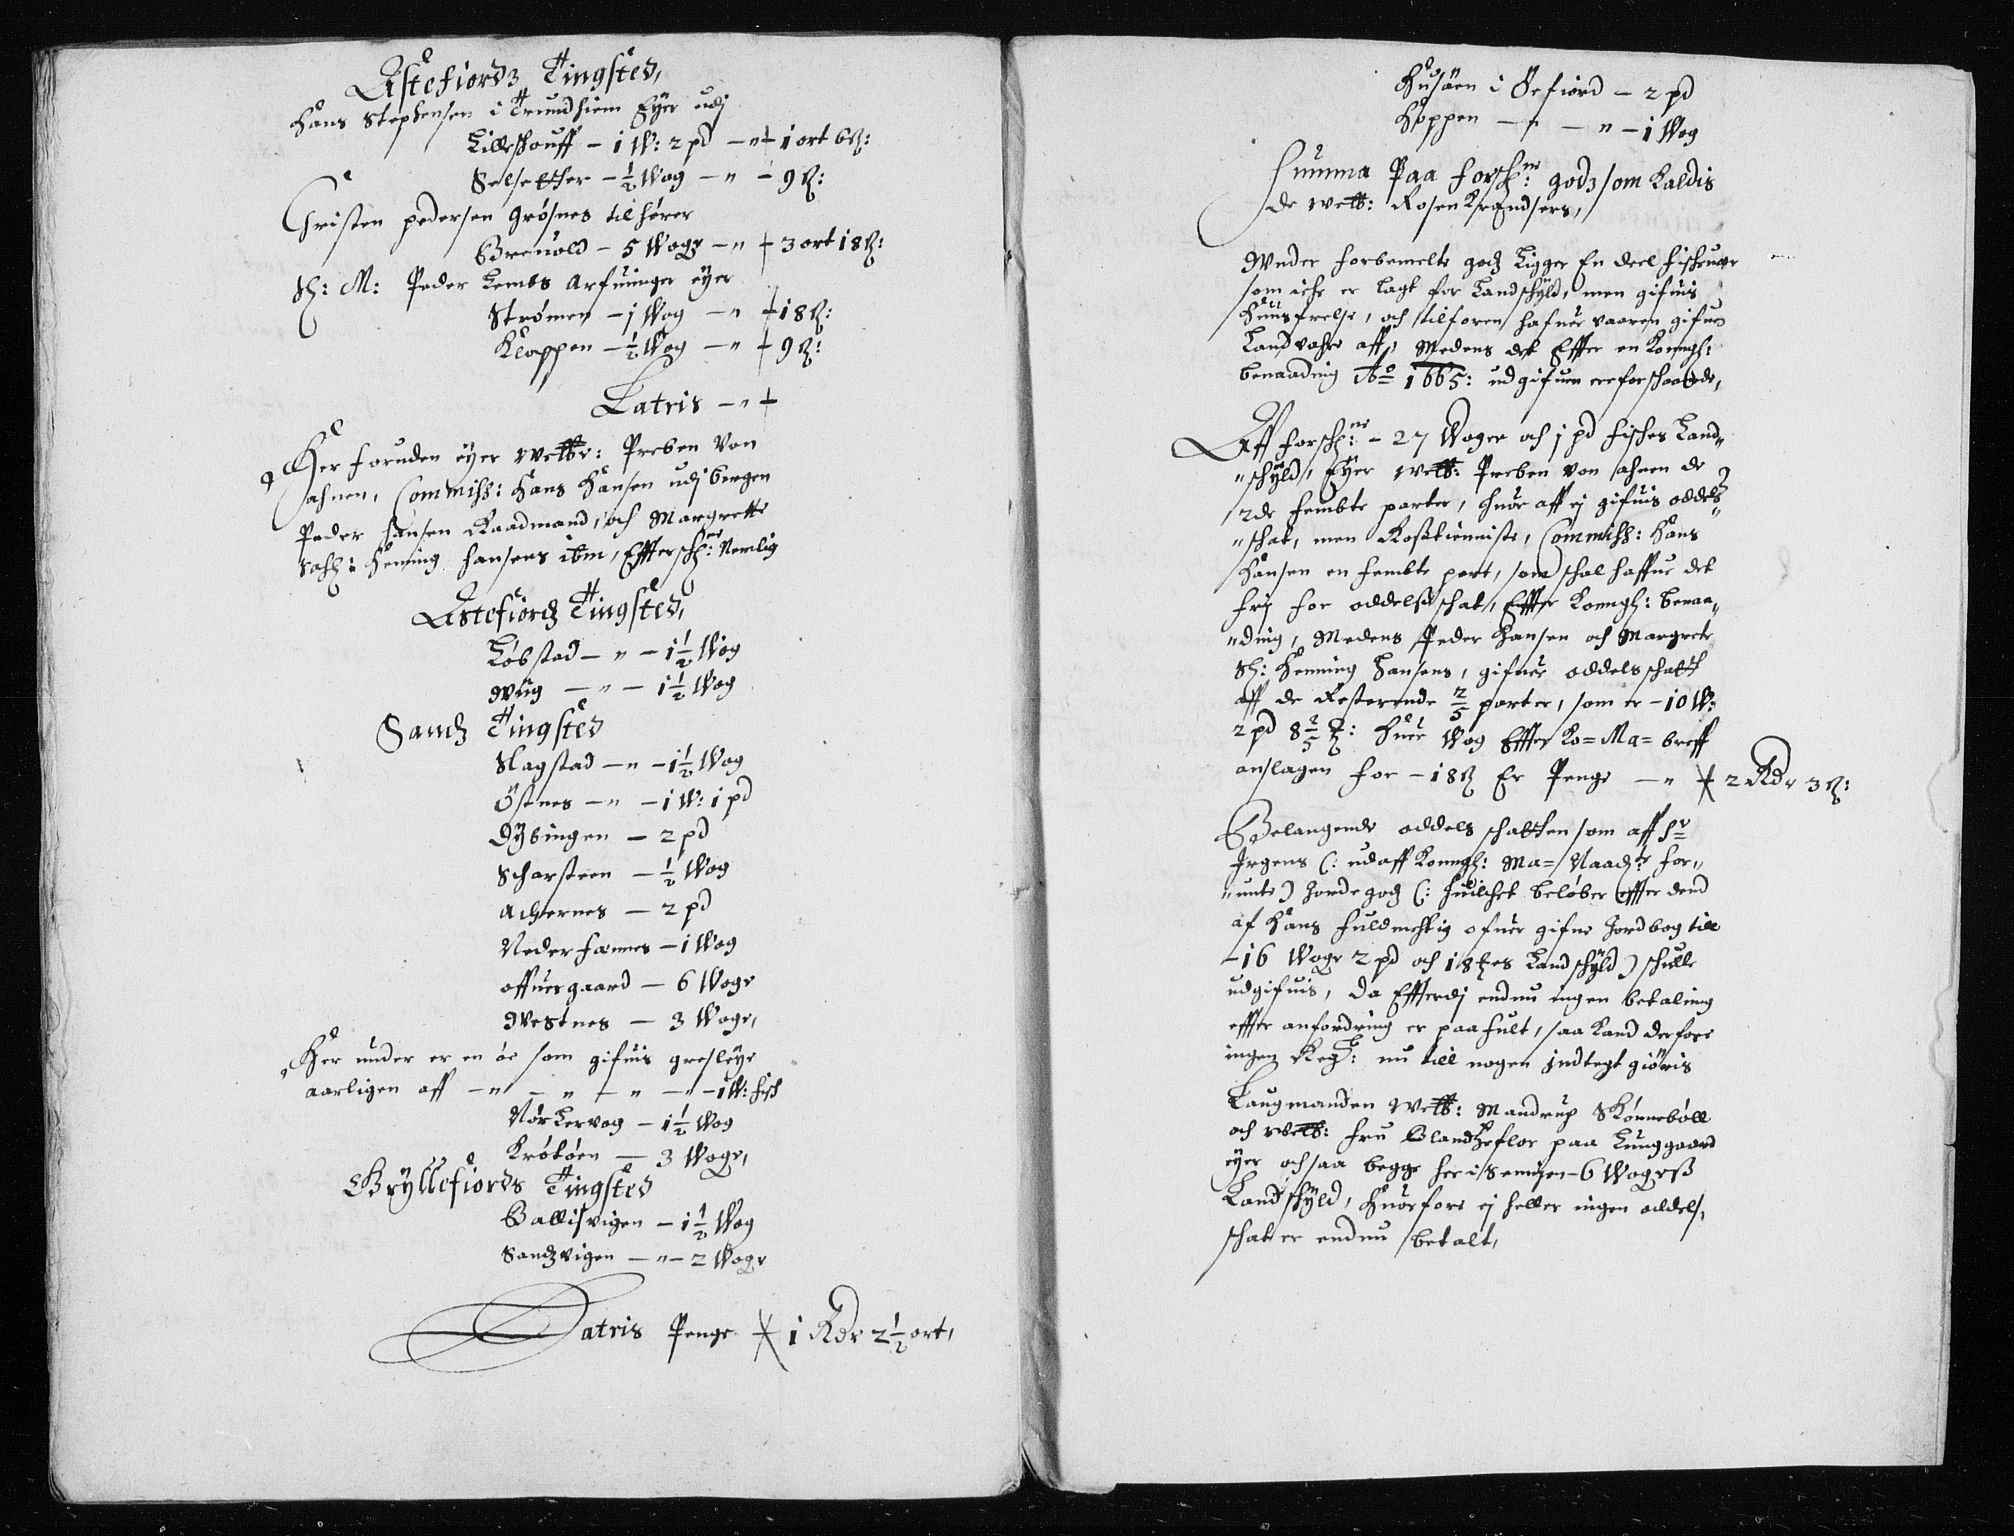 Astefiordz Tingsted,
Hans Stephensen i Trundhiem Eÿer udj
Lilleskouff – 1 W: 2 pd – " – 1 ort 6 ß:
Selsetther – ½ Wog – " – 9 ß:
Christen pedersen Grøsnes tilhører
Grenuold – 5 Woge – " – 3 ort 18 ß:
Sl: M: Peder Lembs Arfuinger eÿer
Strømen – 1 Wog – " – 18 ß:
Kloppen – ½ Wog – " – 9 ß:
Latris – "
Her foruden eÿer Welbr: Preben Von
Ahnen, Commiss: Hans Hansen udj bergen
Peder Hansen Raadmand, och Margrette
Sahl: Henning Hansens ibm, Effterschne: Nemlig
Astefiordz Tingsted,
Løbstad – " – 1½ Wog
Wug – " – 1½ Wog
Sandz Tingsted
Slagstad – " – 1½ Wog
Östnes – " – 1 W: 1 pd
Dÿbingen – 2 pd
Scharsteen – ½ Wog
Achernes – 2 pd
Nederfannes – 1 Wog
offuergaard – 6 Woge
Westnes – 3 Woge,
Her under er en öe som gifuis gresleÿe
aarligen aff – " – " – " – " – 1 W: fisk
Nörkervog – 1½ Wog
Krököen – 3 Woge,
Grÿllefiords Tingsted
Ballisvigen – 1½ Wog
Sandzvigen – " – 2 Woge
Latris Penge 1 Rdr 2½ ort,
Husöen i Öefiord – 2 pd
Hoppen – " – " – 1 Wog
Summa Paa forschne: godz som Kaldis
de Welb: Rosenkrandsers,
Wnder forbemelte godz Ligger En deel fischeuær
som iche er lagt for Landschÿld, men gifuis
Huusfrelse, och tilforen hafuer vaaren gifuen
Landvahre aff, Medens det Effter en Konngl:
benaading Ao 1665: udgifuen er forschaanede,
Aff forschne: – 27 Woger och 1 pd fisches Land"
"schÿld, Eÿer Welb: Preben von Ahnen de
2de fembte parter, huor aff ej gifuis oddels"
"schat, men Rosstienniste, Commiss: Hans
Hansen en fembte part, som schal haffue det
frj for oddelss schat, Effter Konngl: benaa"
"ding, Medens Peder Hansen och Margrete
Sl: Henning Hansens, gifuer oddels schatt
aff de Resterende 2/5 parter, som er – 10 W:
2 pd 8 2/5 : Huer Wog Effter Ko= Ma= breff
anslagen for – 18 ß Er Penge – " 2 Rdr 3 ß:
Belangende oddels schatten som aff Hr
Irgens (: udaff Konngl: Ma= Naadst for"
"unte) Jordegodz (: huilchet beløber effter dend
af Hans fuldmektig ofuer gifne Jordbog till
– 16 Woge 2 pd och 18 es Landschÿld) schulle
udgifuis, da Effterdj endnu ingen betaling
effter anfordring er paafult, saa Kand derfore
ingen Regsk: nu till nogen indtegt giöris
Laugmanden Welb: Mandrup Skønnebøll
och Welb: fru Blandzeflor paa Lunggaard
eÿer ochsaa begge her i Senien – 6 Wogrß
Landschÿld, huorfore ej heller ingen oddels,
schat er endnu betalt,